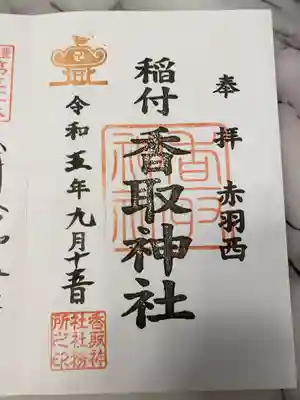 奉拝 赤羽西
稲付 香取神社
令和五年九月十五日
香取神
社社務
所之印